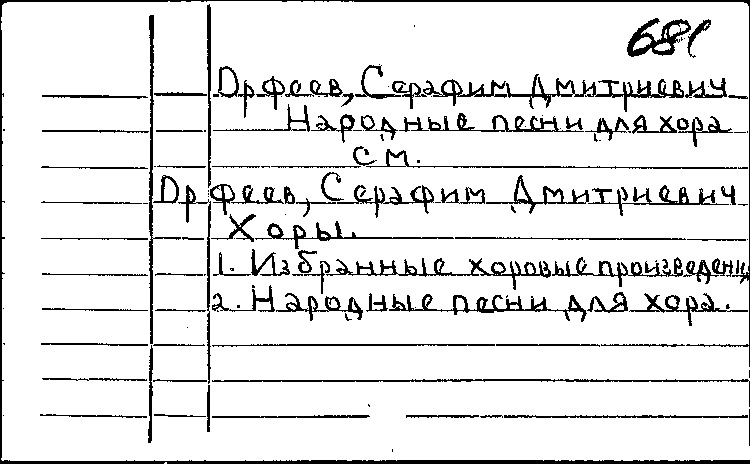 681
Орфеев, Серафим Дмитриевич
Народные песни для хора
см.
Орфеев, Серафим Дмитриевич
Хоры.
1. Избранные хоровые произведени
2. Народные песни для хора.